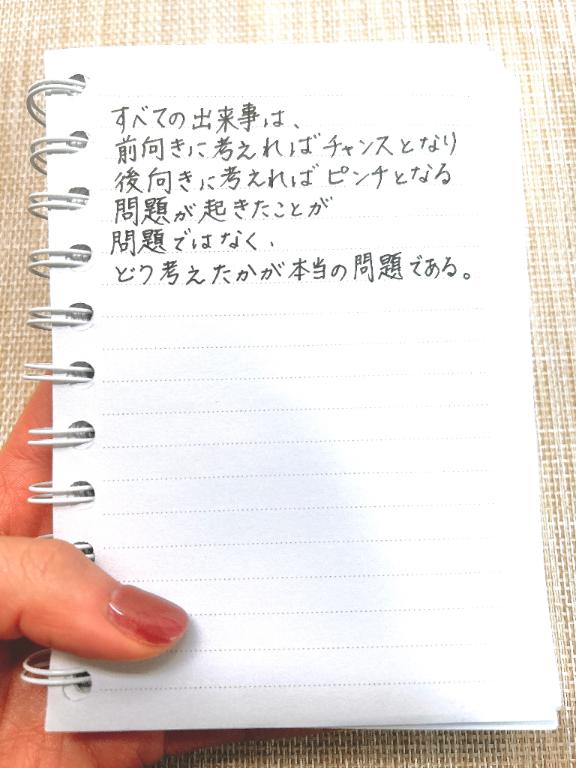 すべての出来事は、
前向きに考えればチャンスとなり
後向きに考えればピンチとなる
問題が起きたことが
問題ではなく、
どう考えたかが本当の問題である。